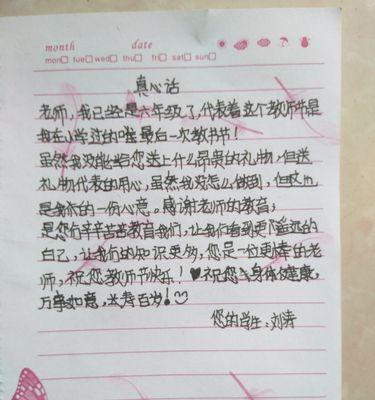 month date
mon tue wed thu fri sat sun
真心话
老师,我已经是六年级了,代表着这个教师节是
我在小学过的唯最后一次教书节!
虽然我没能给您送上什么昂贵的礼物,但送
礼物代表的用心,虽然我没怎么做到,但这也
是我你的一份心意。感谢老师的教育;
是您们辛辛苦苦教育我们,让我们看到更遥远的
自己,让我们的知识更多,您是一位更棒的老
师,祝您教师节快乐!♥祝您身体健康,
万事如意,长寿百岁!
您的学生:刘涛